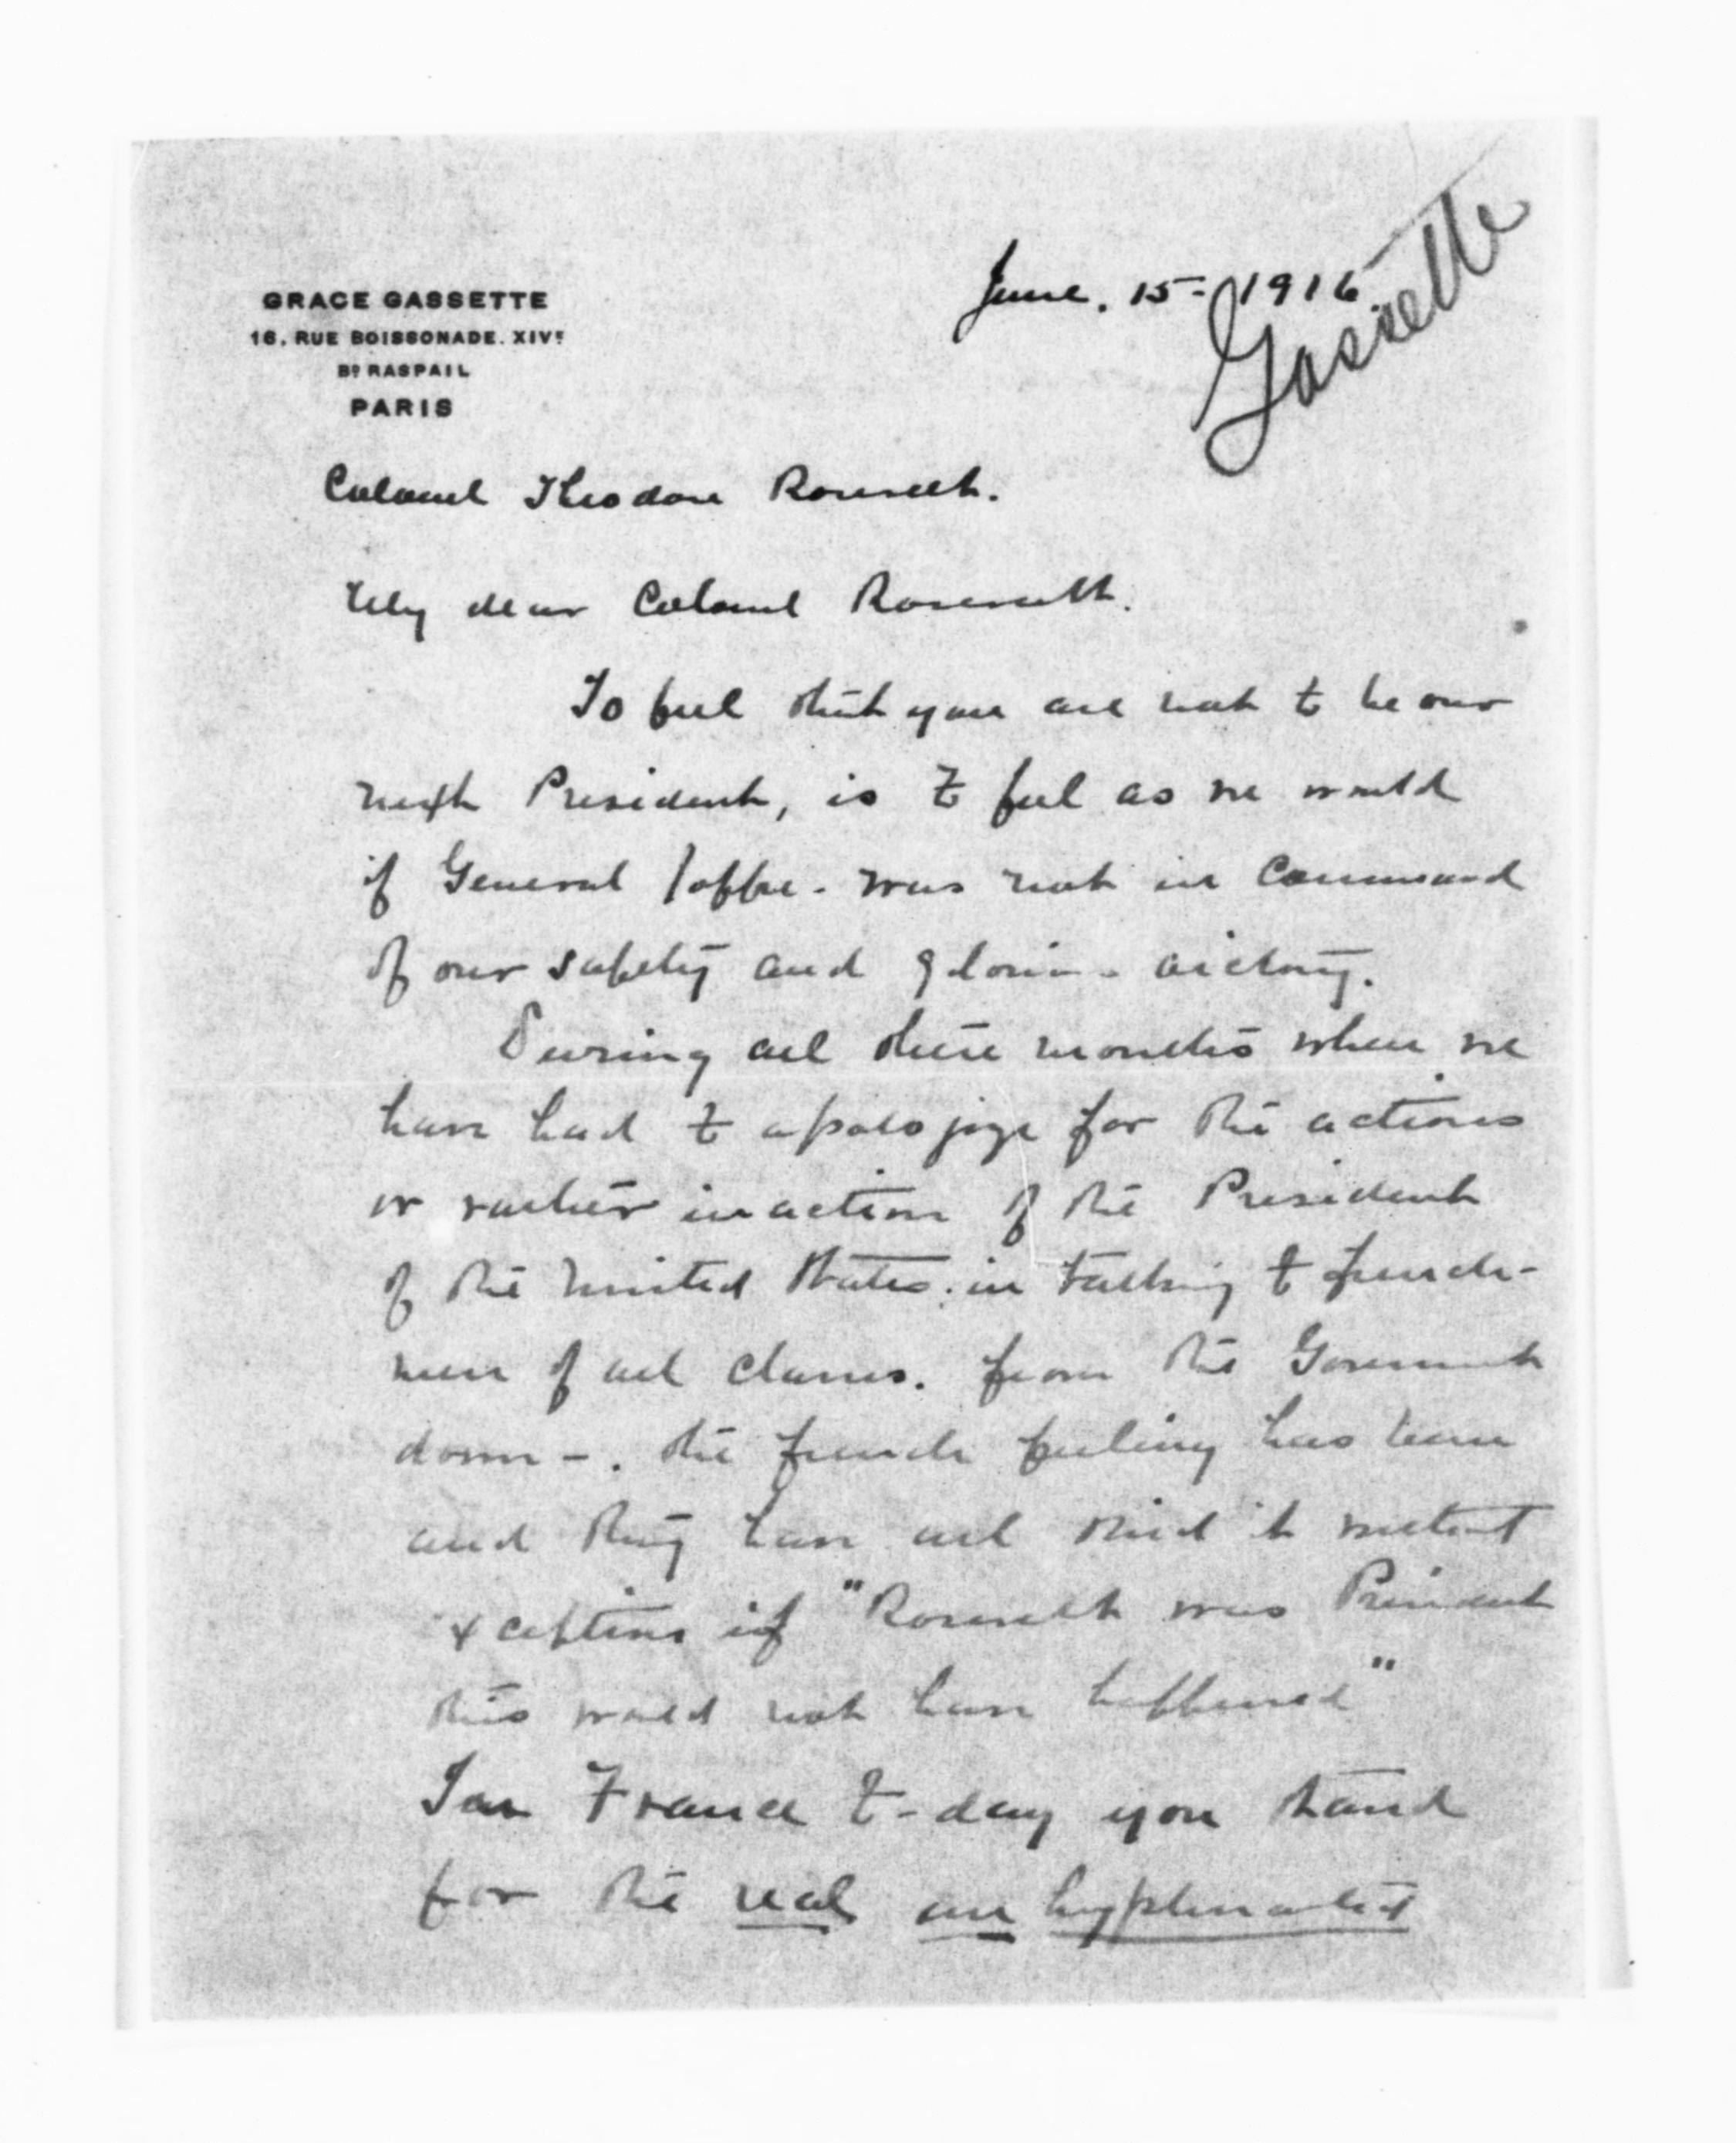 June. 15 - 1916.
Gassette
GRACE GASSETTE
16, RUE BOISSONADE. XIVe
Bd RASPAIL
PARIS
Colonel Theodore Roosevelt.
My dear Colonel Roosevelt.
To feel that you are not to be our
next President, is to feel as we would
if General Joffre - was not in Command
of our safety and glorious victory.
During all these months when we
have had to apologize for the actions
or rather inaction of the President
of the United States; in talking to French-
men of all classes. from the Government
down -. the French feeling has been
and they have all said it without
exceptions if "Roosevelt was President
this would not have happened"
For France to-day you stand
for the real un hyphenated